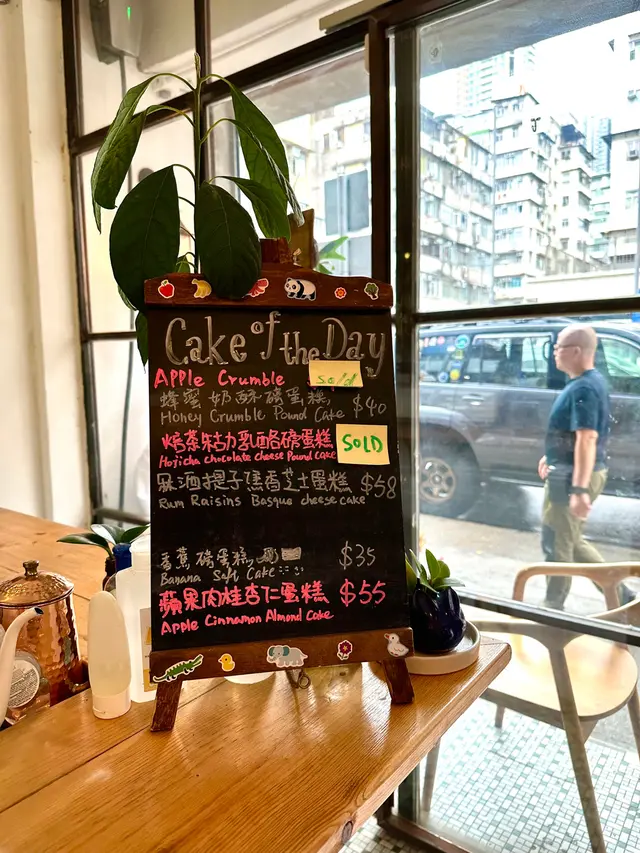 Cake of the Day
APPle Crumble sold
蜂蜜奶酥磅蛋糕
Honey Crumble Pound Cake $40
焙茶朱古力乳酪磅蛋糕 SOLD
Hojicha chocolate cheese Pound Cake
冧酒提子焦香芝士蛋糕 $58
Rum Raisins Basque cheese cake
香蕉磅蛋糕 $35
Banana Salt Cake
蘋果肉桂杏仁蛋糕 $55
Apple Cinnamon Almond Cake